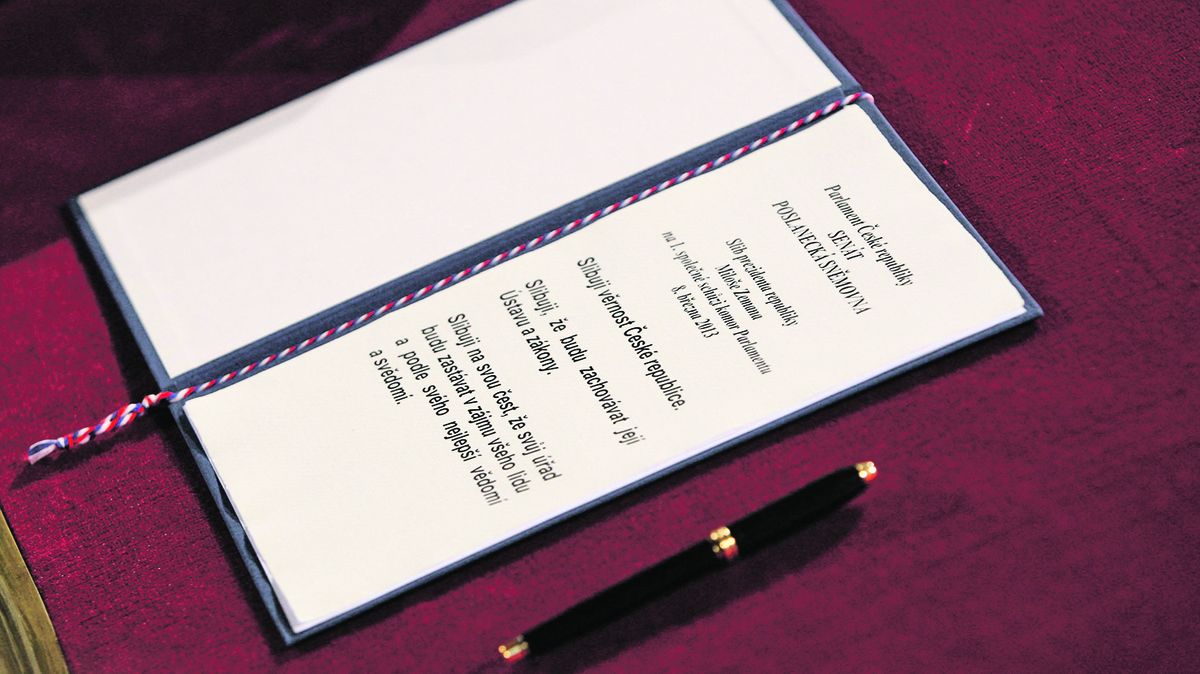 Parlament České republiky
SENÁT
POSLANECKÁ SNĚMOVNA
Slib prezidenta republiky
Miloše Zemana
na 1. společné schůzi komor Parlamentu
8. března 2013
Slibuji věrnost České republice.
Slibuji, že budu zachovávat její
Ústavu a zákony.
Slibuji na svou čest, že svůj úřad
budu zastávat v zájmu všeho lidu
a podle svého nejlepší vědomí
a svědomí.